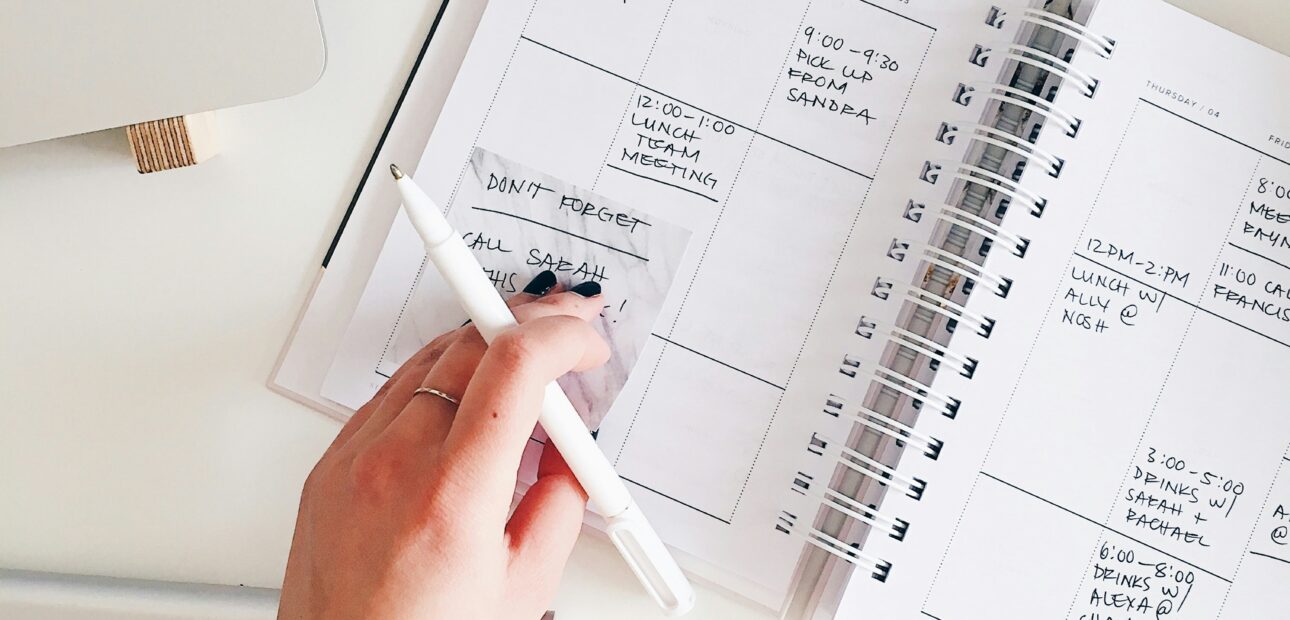 9:00-9:30
PICK UP
FROM
SANDRA
12:00-1:00
LUNCH
TEAM
MEETING
DON'T FORGET
CALL SARAH
THIS
THURSDAY / 04
12PM-2:PM
LUNCH W/
ALLY @
NOSH
11:00
3:00-5:00
DRINKS W/
SARAH +
RACHAEL
6:00-8:00
DRINKS W/
ALEXA @